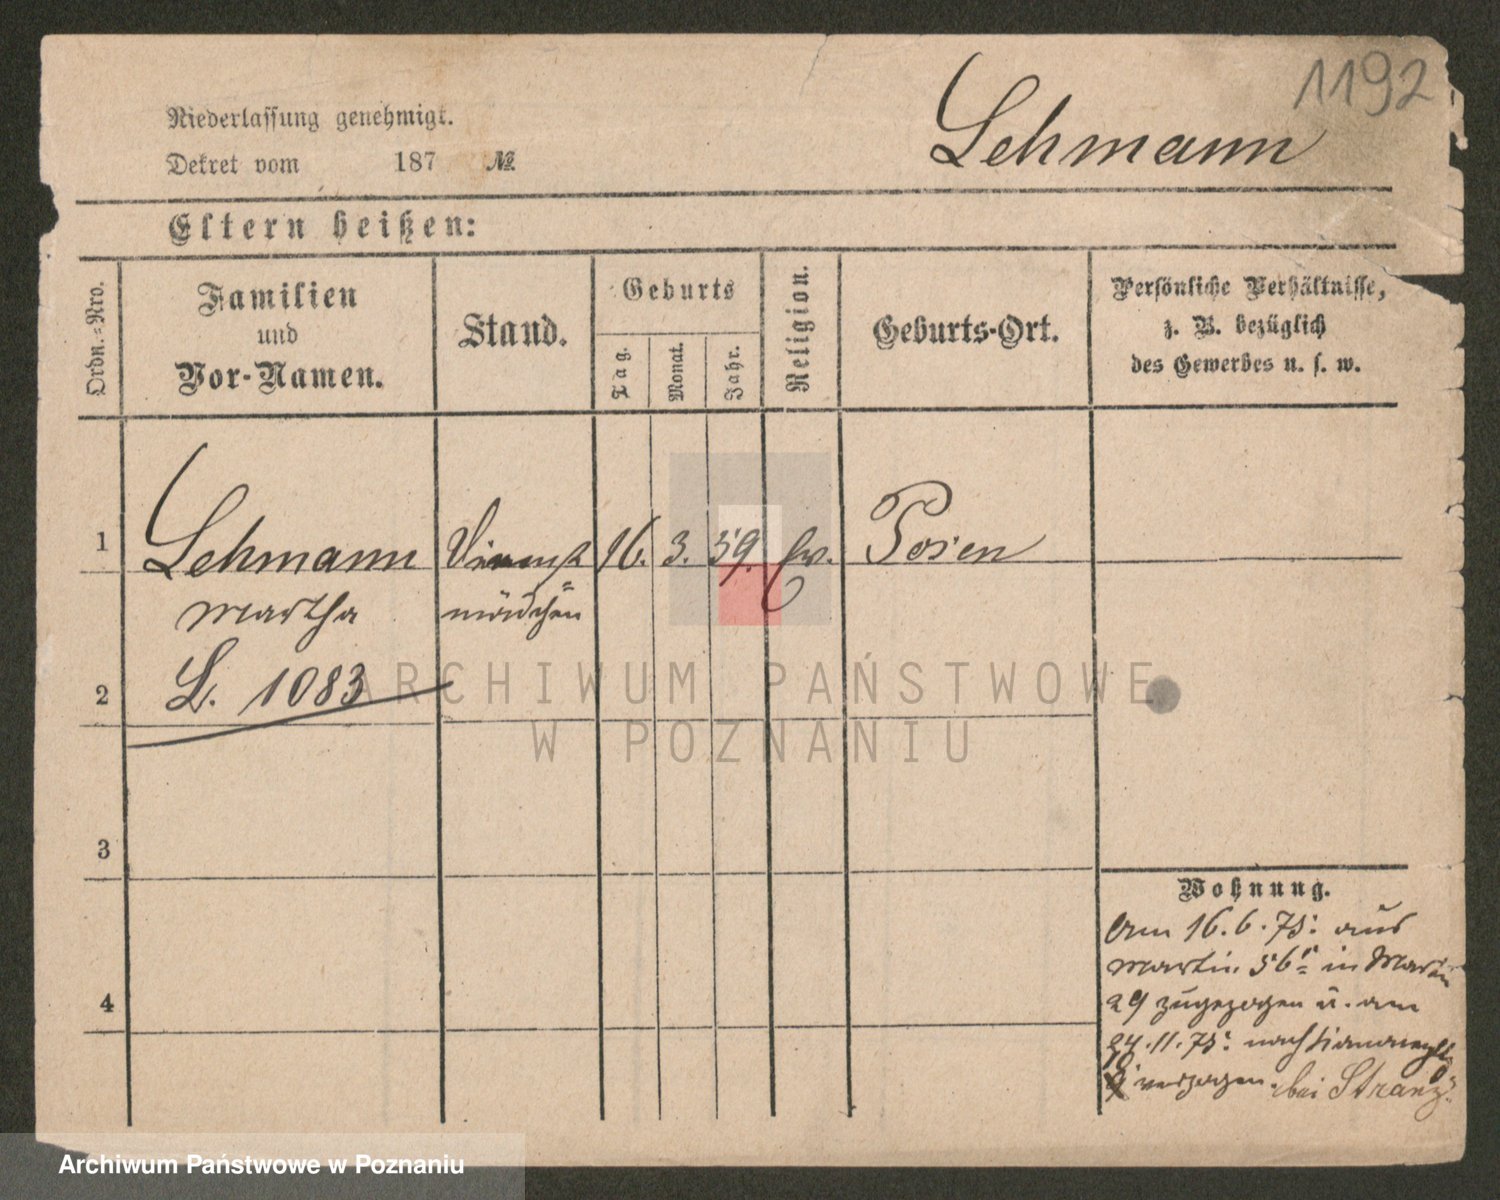 1192
Lehmann
Niederlassung genehmigt.
Dekret vom 187 №
Eltern heißen:
Ordn.=Nro.
Familien
und
Vor-Namen.
Stand.
Geburts
Tag.
Monat.
Jahr.
Religion.
Geburts-Ort.
Persönliche Verhältnisse,
z. B. bezüglich
des Gewerbes u. s. w.
1 Lehmann Dienst 16. 3. 59. Ev. Posen
Martha mädchen
2 L. 1083
3
4
Wohnung.
Am 16.6.75: aus
Martin 56 in Martin
29 zugezogen u. am
24.11.75: nach
verzogen. bei Stranz
ARCHIWUM PAŃSTWOWE
W POZNANIU
Archiwum Państwowe w Poznaniu